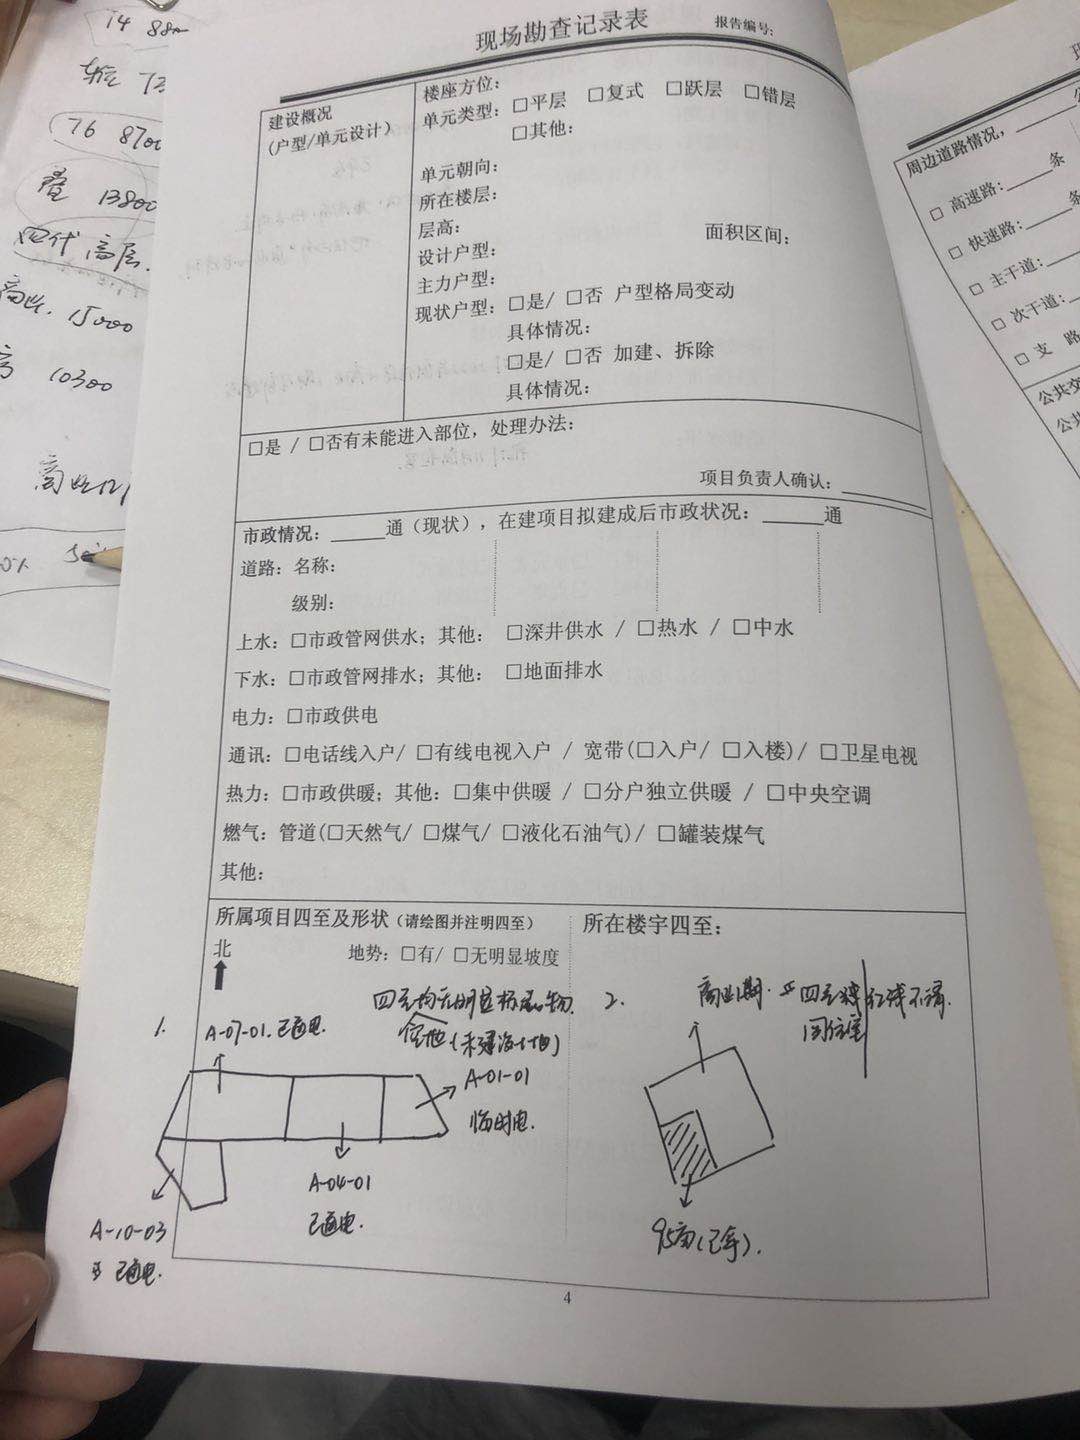 现场勘查记录表 报告编号:
建设概况
(户型/单元设计)
楼座方位:
单元类型: □平层 □复式 □跃层 □错层
□其他:
单元朝向:
所在楼层:
层高: 面积区间:
设计户型:
主力户型:
现状户型: □是/ □否 户型格局变动
具体情况:
□是/ □否 加建、拆除
具体情况:
□是 / □否有未能进入部位，处理办法:
项目负责人确认:
市政情况: 通（现状），在建项目拟建成后市政状况: 通
道路: 名称:
级别:
上水: □市政管网供水; 其他: □深井供水 / □热水 / □中水
下水: □市政管网排水; 其他: □地面排水
电力: □市政供电
通讯: □电话线入户/ □有线电视入户 / 宽带(□入户/ □入楼)/ □卫星电视
热力: □市政供暖; 其他: □集中供暖 / □分户独立供暖 / □中央空调
燃气: 管道(□天然气/ □煤气/ □液化石油气)/ □罐装煤气
其他:
所属项目四至及形状（请绘图并注明四至）
北 地势: □有/ □无明显坡度
四至均无明显标志物.
空地
1.
A-07-01. 已通电.
A-01-01
临时电.
A-04-01
已通电.
A-10-03
已通电.
所在楼宇四至:
2.
商业1期.
红线不清.
95亩
4
周边道路情况，
□ 高速路: 条
□ 快速路: 条
□ 主干道:
□ 次干道:
□ 支 路
公共交
14
76 8700
叠 13800
四代高层.
15000
10300